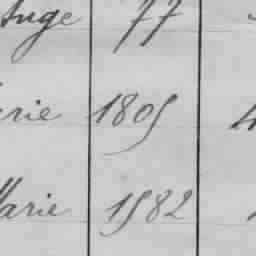 Ange 77
erie 1805
Marie 1882